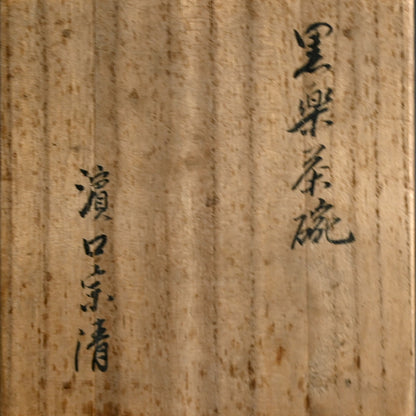 黒楽茶碗
濱口宗清